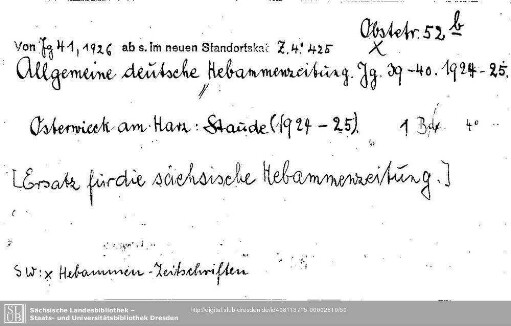 Obstetr. 52 b
Von Jg 41, 1926 ab s. im neuen Standortskat Z. 4° 425
x
Allgemeine deutsche Hebammenzeitung. Jg. 39-40. 1924-25.
Osterwieck am Harz: Staude (1924-25). 1 Bd. 4°
[Ersatz für die sächsische Hebammenzeitung.]
SW: x Hebammen-Zeitschriften
SLUB
Sächsische Landesbibliothek –
Staats- und Universitätsbibliothek Dresden